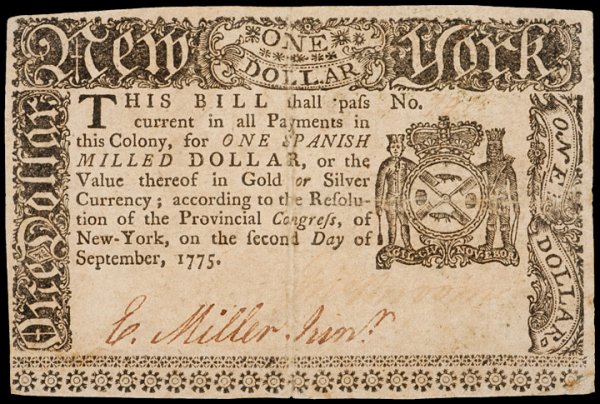 New ONE DOLLAR York
One Dollar
THIS BILL ſhall paſs
current in all Payments in
this Colony, for ONE SPANISH
MILLED DOLLAR, or the
Value thereof in Gold or Silver
Currency; according to the Reſolu-
tion of the Provincial Congreſs, of
New-York, on the ſecond Day of
September, 1775.
No.
ONE DOLLAR
E. Miller Junr.